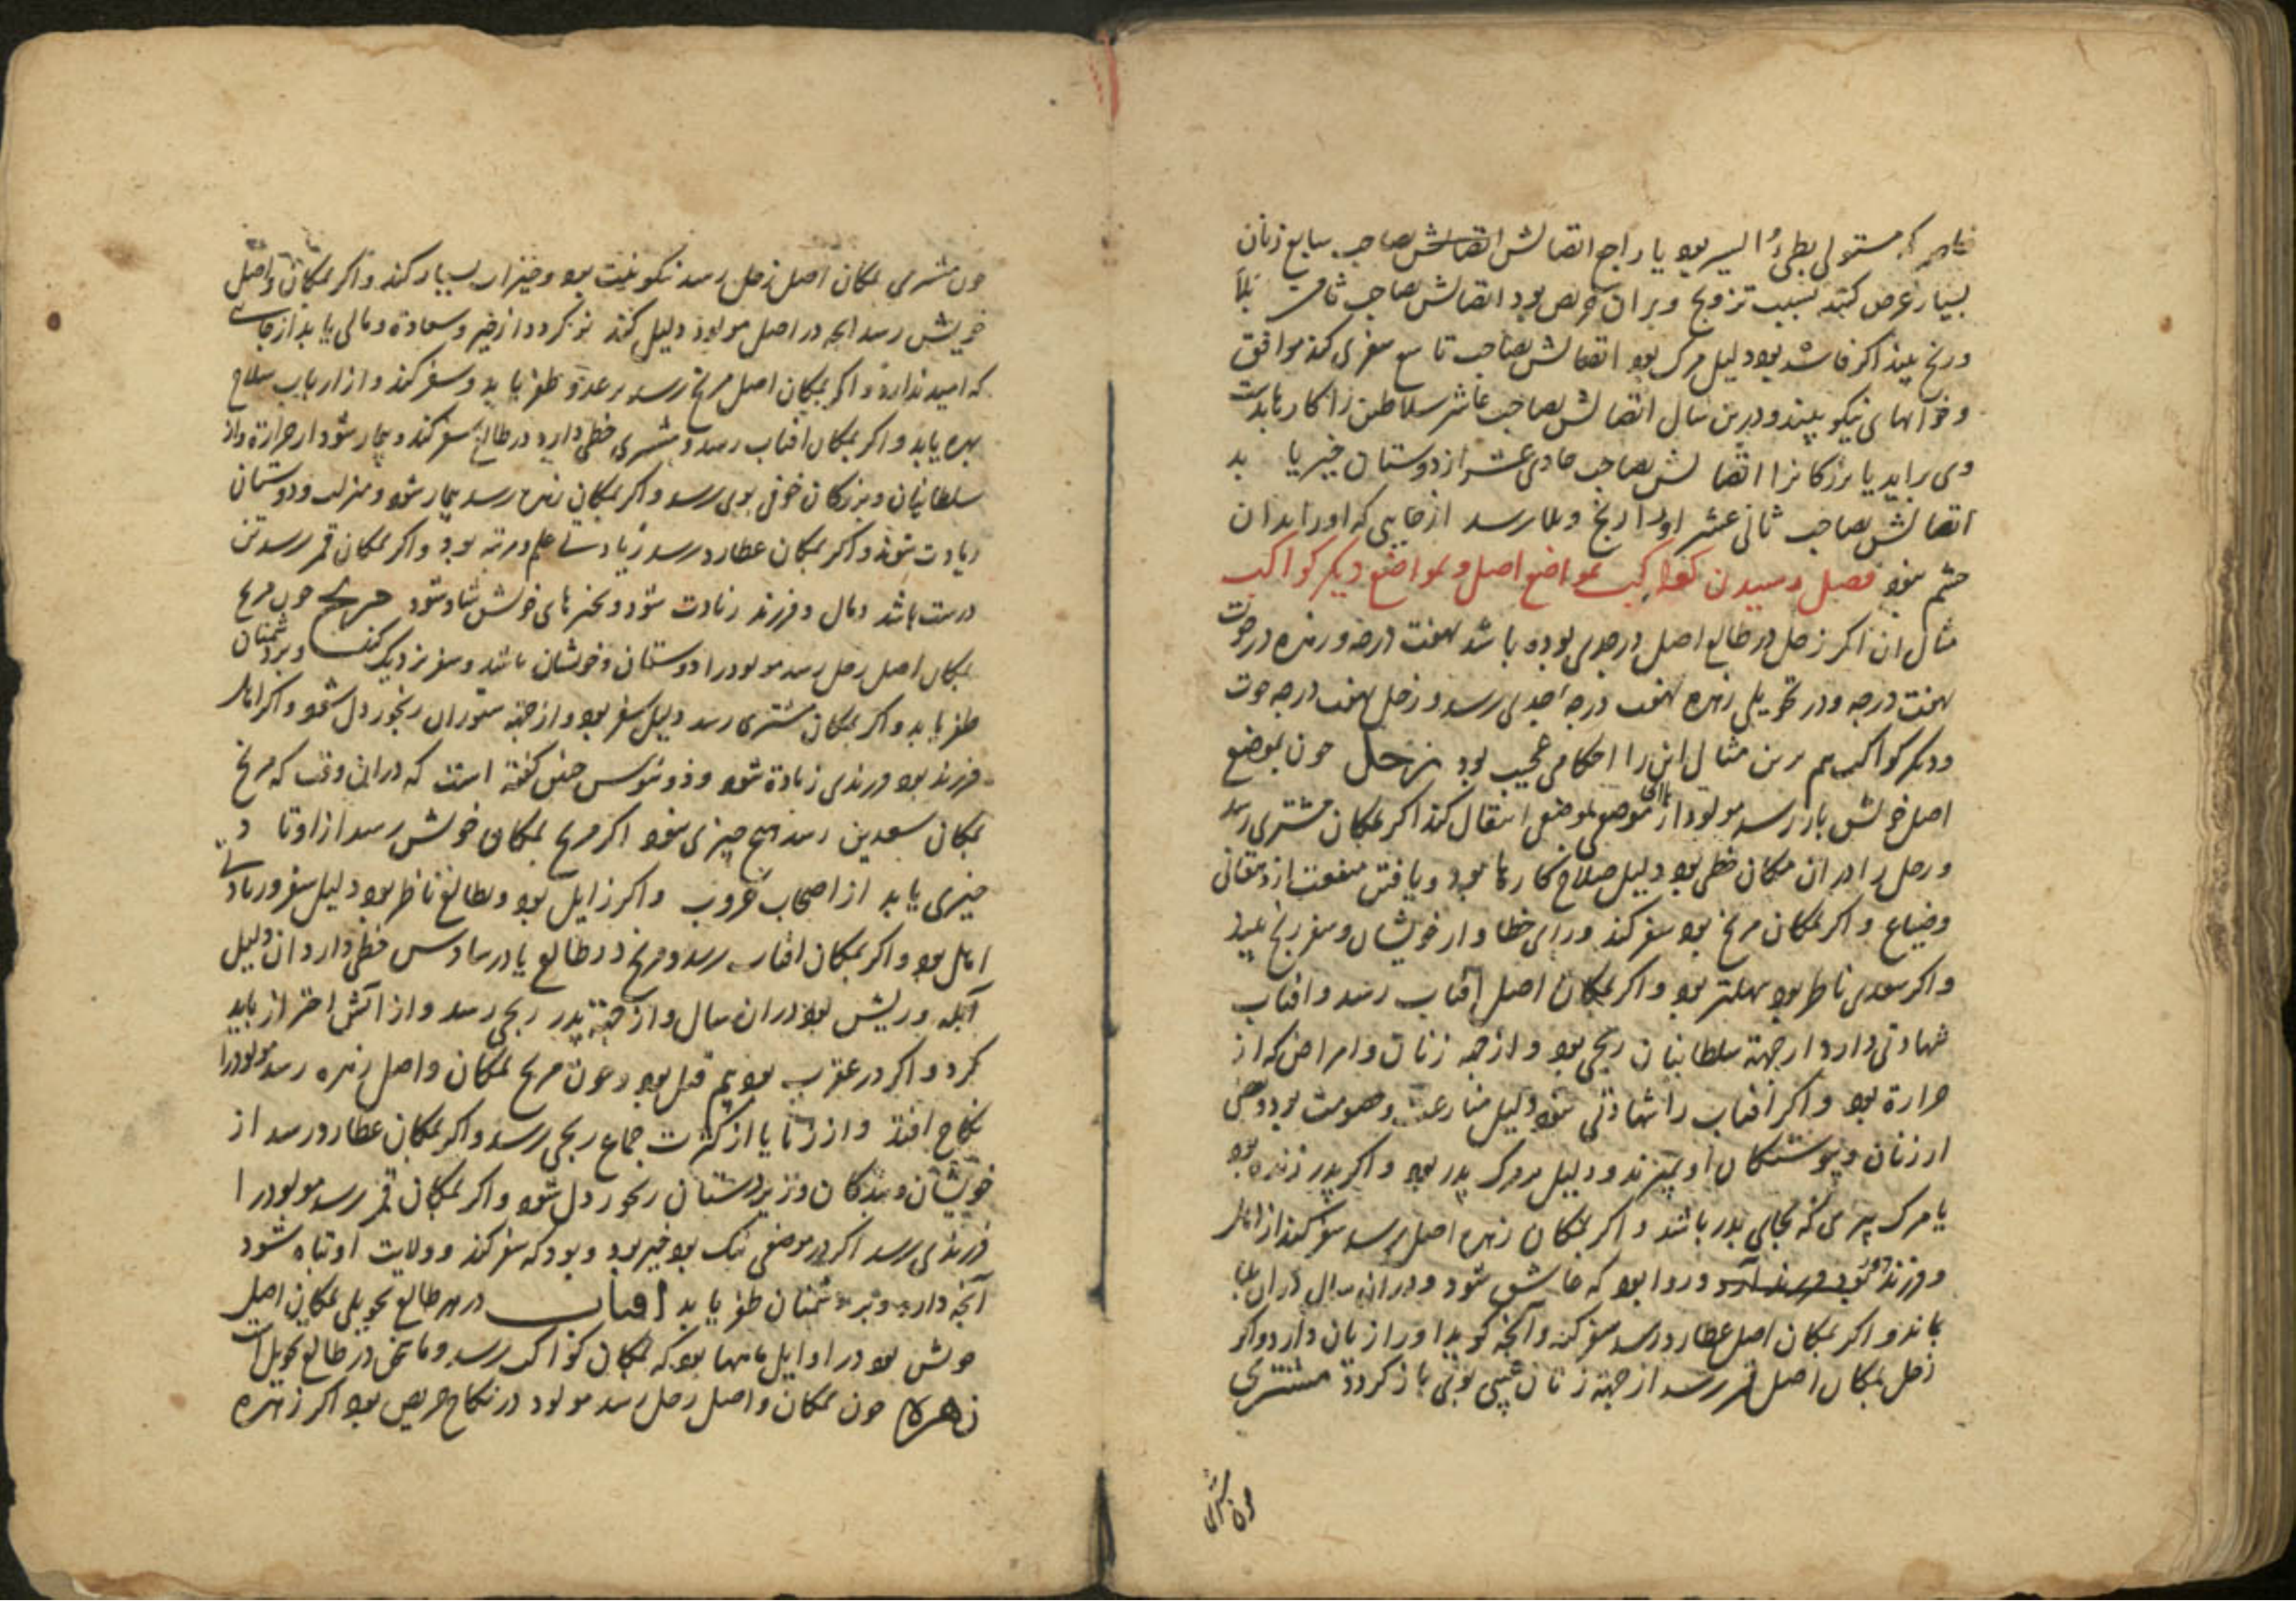 مستولی بطیء السیر بود یا راجع اتصالش اتصالش بصاحب سابع زنان
بسیار عرض کند بسبب تزویج و بران حریص بود اتصالش بصاحب ثامن بلا
و رنج بیند اکر فاسد بود دلیل مرک بود اتصالش بصاحب تاسع سفری کند موافق
و خوابهای نیکو بیند و درین سال اتصالش بصاحب عاشر سلاطین را کارها بدست
وی براید یا بزرکانرا اتصالش بصاحب حادی عشر از دوستان خیر یابد
اتصالش بصاحب ثانی عشر او را رنج و بلا رسد از جایی که او را بدان
چشم نبود فصل رسیدن کواکب بمواضع اصل و بمواضع دیکر کواکب
مثال ان اکر زحل در طالع اصل در جدی بوده باشد بهفت درجه و زهره در حوت
بهفت درجه و در تحویلی زهره بهفت درجه جدی رسد و زحل بهفت درجه حوت
و دیکر کواکب هم برین مثال این را احکامی عجیب بود زحل چون بموضع
اصل خویش باز رسد مولود از موضعی بموضعی انتقال کند اکر بمکان مشتری رسد
و زحل را در ان مکان حظی بود دلیل صلاح کارها بود و یافتن منفعت از دهقانی
و ضیاع و اکر بمکان مریخ بود سفر کند و رای خطا و از خویشان و سفر رنج بیند
و اکر سعدی ناظر بود سهلتر بود و اکر بمکان اصل افتاب رسد و افتاب
شهادتی دارد از جهة سلطانیان رنجی بود و از جهة زنان و امراض که از
حرارة بود و اکر افتاب را شهادتی نبود دلیل منازعت و خصومت بود و بعضی
از زنان و پیوستکان او بمیرند و دلیل مرک پدر بود و اکر پدر زنده بود
یا مرک پیری که بجای پدر باشد و اکر بمکان زهره اصل رسد سفر کند از
و فرزند و روا بود که عاشق شود و دران سال دران بلا
بماند و اکر بمکان اصل عطارد رسد سفر کند و آنچه کوید او را زیان دارد و اکر
زحل بمکان اصل قمر رسد از جهة زنان باز کردد مشتری
چون مشتری
چون مشتری بمکان اصل زحل رسد نیکو نیت بود و خیرات بسیار کند و اکر بمکان واصل
خویش رسد انچه در اصل مولود دلیل کند نو کردد از خیر و سعادة و مالی یابد از جایی
که امید ندارد و اکر بمکان اصل مریخ رسد بر عدو ظفر یابد و سفر کند و از ارباب سلاح
بهره یابد و اکر بمکان افتاب رسد و مشتری حظی دارد در طالع سفر کند و بیمار شود از حرارة و از
سلطانیان و بزرکان خوفی بوی رسد و اکر بمکان زهره رسد بیمار شود و منزلت و دوستان
زیادت شوند و اکر بمکان عطارد رسد زیادتی علم و مرتبه بود و اکر بمکان قمر رسد تن
درست باشد و مال و فرزند زیادت شود و بخیرهای خویش شاد شود مریخ چون مریخ
بمکان اصل زحل رسد مولود را دوستان و خویشان باشد و سفر نزدیک کند و بر دشمنان
ظفر یابد و اکر بمکان مشتری رسد دلیل سفر بود و از جهة ستوران رنجور دل شود و اکر
فرزند بود فرزندی زیادة شود و ذونیوس چنین کفته است که دران وقت که مریخ
بمکان سعدین رسد هیچ چیزی نبود اکر مریخ بمکان خویش رسد از اوتاد
چیزی یابد از اصحاب حروب و اکر زایل بود و بطالع ناظر بود دلیل سفر و زیادتی
بود و اکر بمکان افتاب رسد و مریخ در طالع یا در سادس حظی دارد ان دلیل
آبله و ریش بود دران سال و از جهة پدر رنجی رسد و از آتش احتراز باید
کرد و اکر در عقرب بود بیم قتل بود و چون مریخ بمکان واصل زهره رسد مولود را
نکاح افتد و از زنا یا از کثرت جماع رنجی رسد و اکر بمکان عطارد رسد از
خویشان و بندکان و زیردستان رنجور دل شود و اکر بمکان قمر رسد مولود را
فرزندی رسد اکر در موضعی نیک بود خیر بود و بود که سفر کند و ولایت او تباه شود
آنچه دارد و بر دشمنان ظفر یابد افتاب در هر طالع تحویلی بمکان اصل
خویش بود در اوایل ماهها بود که بمکان کواکب رسد و ما سخن در طالع تحویل
زهره چون بمکان واصل زحل رسد مولود در نکاح حریص بود اکر زهره